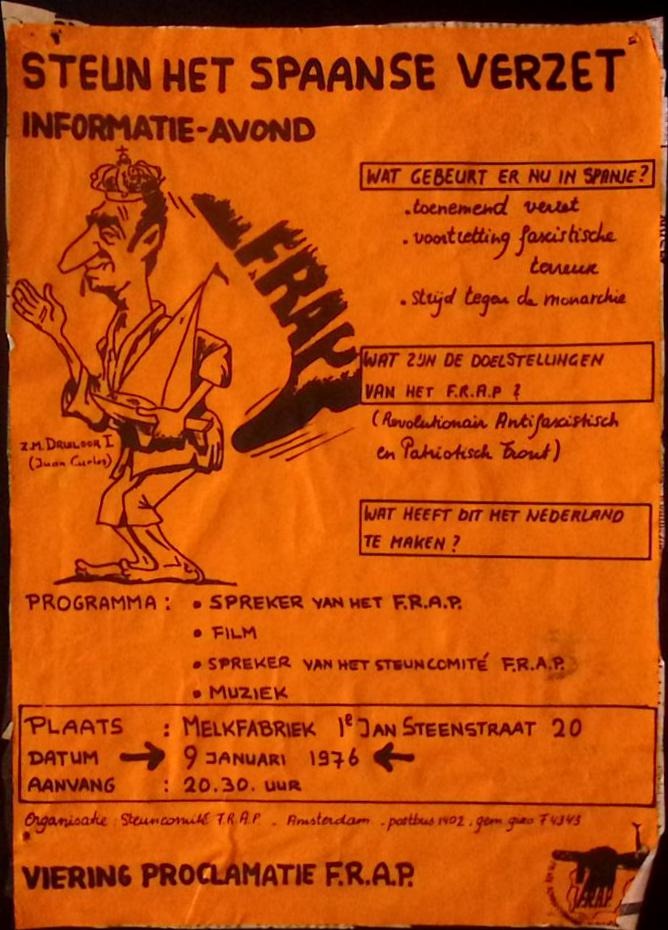 STEUN HET SPAANSE VERZET
INFORMATIE-AVOND
WAT GEBEURT ER NU IN SPANJE?
.toenemend verzet
.voortzetting fascistische
terreur
.strijd tegen de monarchie
F.R.A.P.
WAT ZIJN DE DOELSTELLINGEN
VAN HET F.R.A.P ?
(Revolutionair Antifascistisch
en Patriotisch Front)
Z.M. DRUILOOR I
(Juan Carlos)
WAT HEEFT DIT MET NEDERLAND
TE MAKEN ?
PROGRAMMA : • SPREKER VAN HET F.R.A.P.
• FILM
• SPREKER VAN HET STEUNCOMITÉ F.R.A.P.
• MUZIEK
PLAATS : MELKFABRIEK 1e JAN STEENSTRAAT 20
DATUM → 9 JANUARI 1976 ←
AANVANG : 20.30. UUR
Organisatie : Steuncomité F.R.A.P. . Amsterdam . postbus 1402 . gem giro F4343
VIERING PROCLAMATIE F.R.A.P.
F.R.A.P.